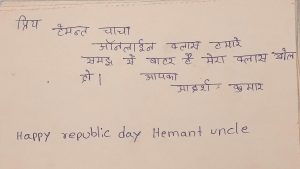 प्रिय
हेमन्त चाचा
ऑनलाईन क्लास हमारे
समझ से बाहर है मेरा क्लास खोल
दो। आपका
आदर्श कुमार
Happy republic day Hemant uncle